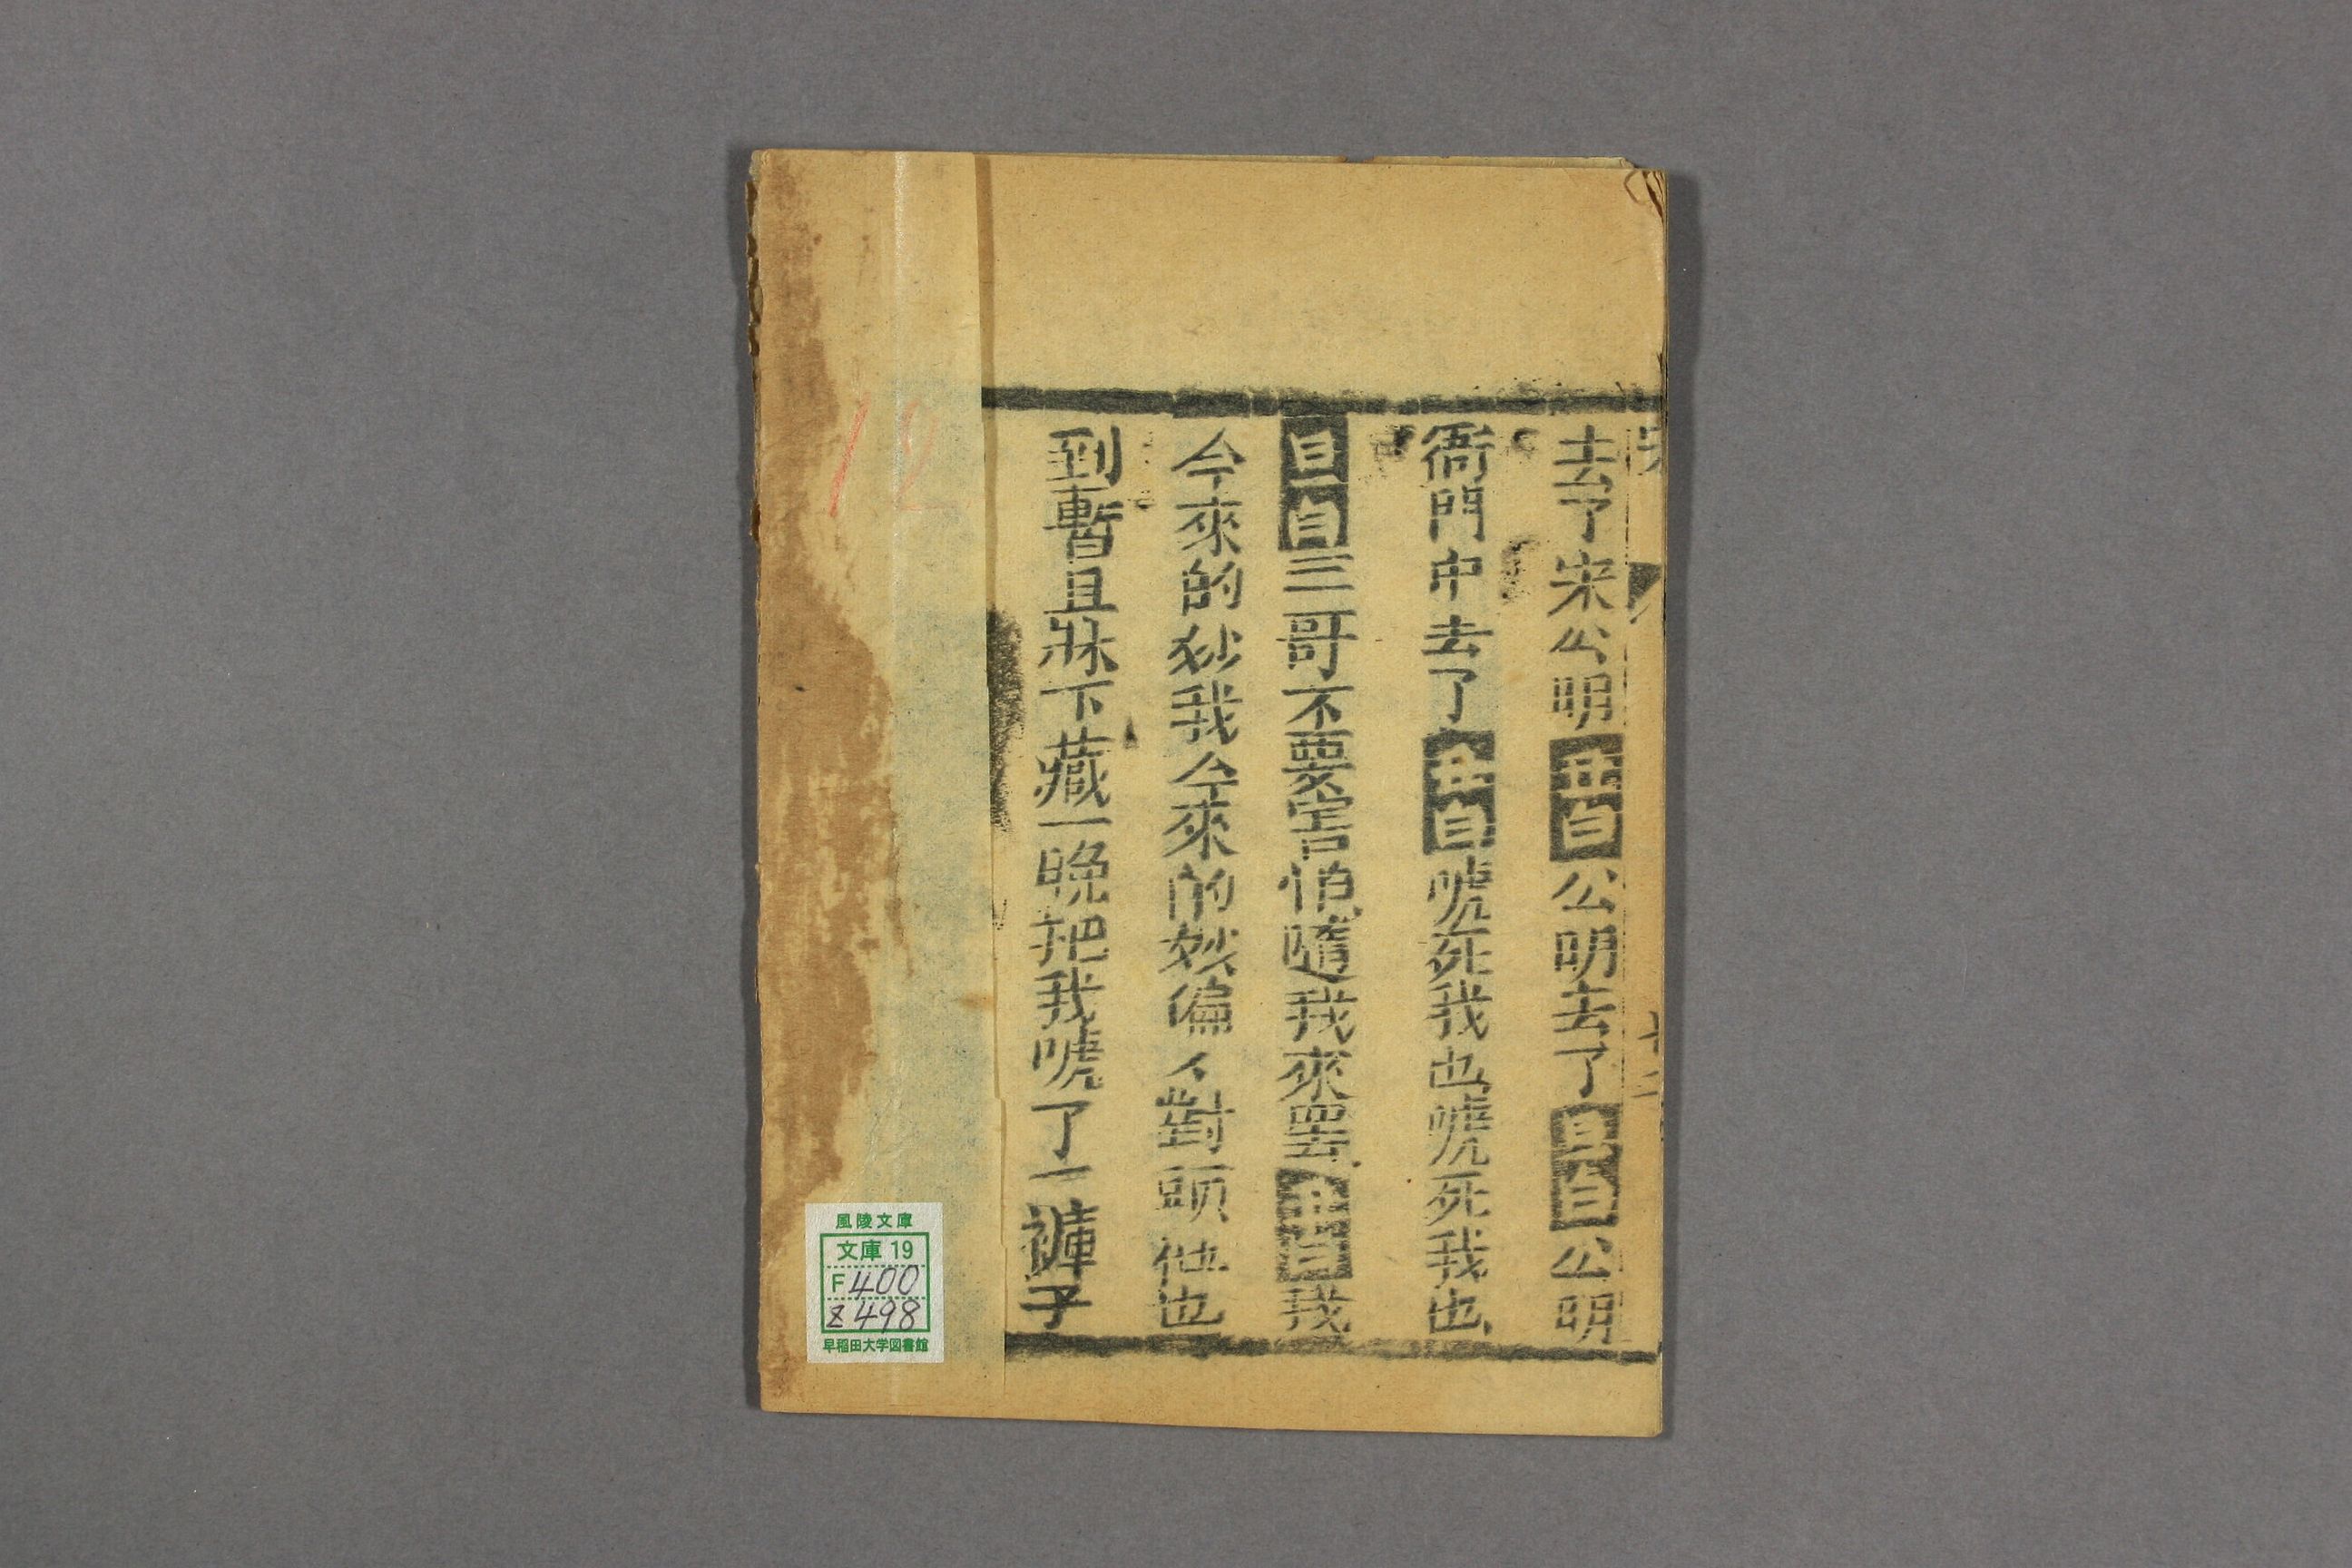 去了宋公明丑白公明去了旦白公明
衙門中去了丑白唬死我也唬死我也
旦白三哥不要害怕隨我來罷丑白我
今來的妙我今來的妙偏人對頭他也
到暫且牀下藏一晚把我唬了一褲子
12
風陵文庫
文庫 19
F 400
Z 498
早稲田大学図書館